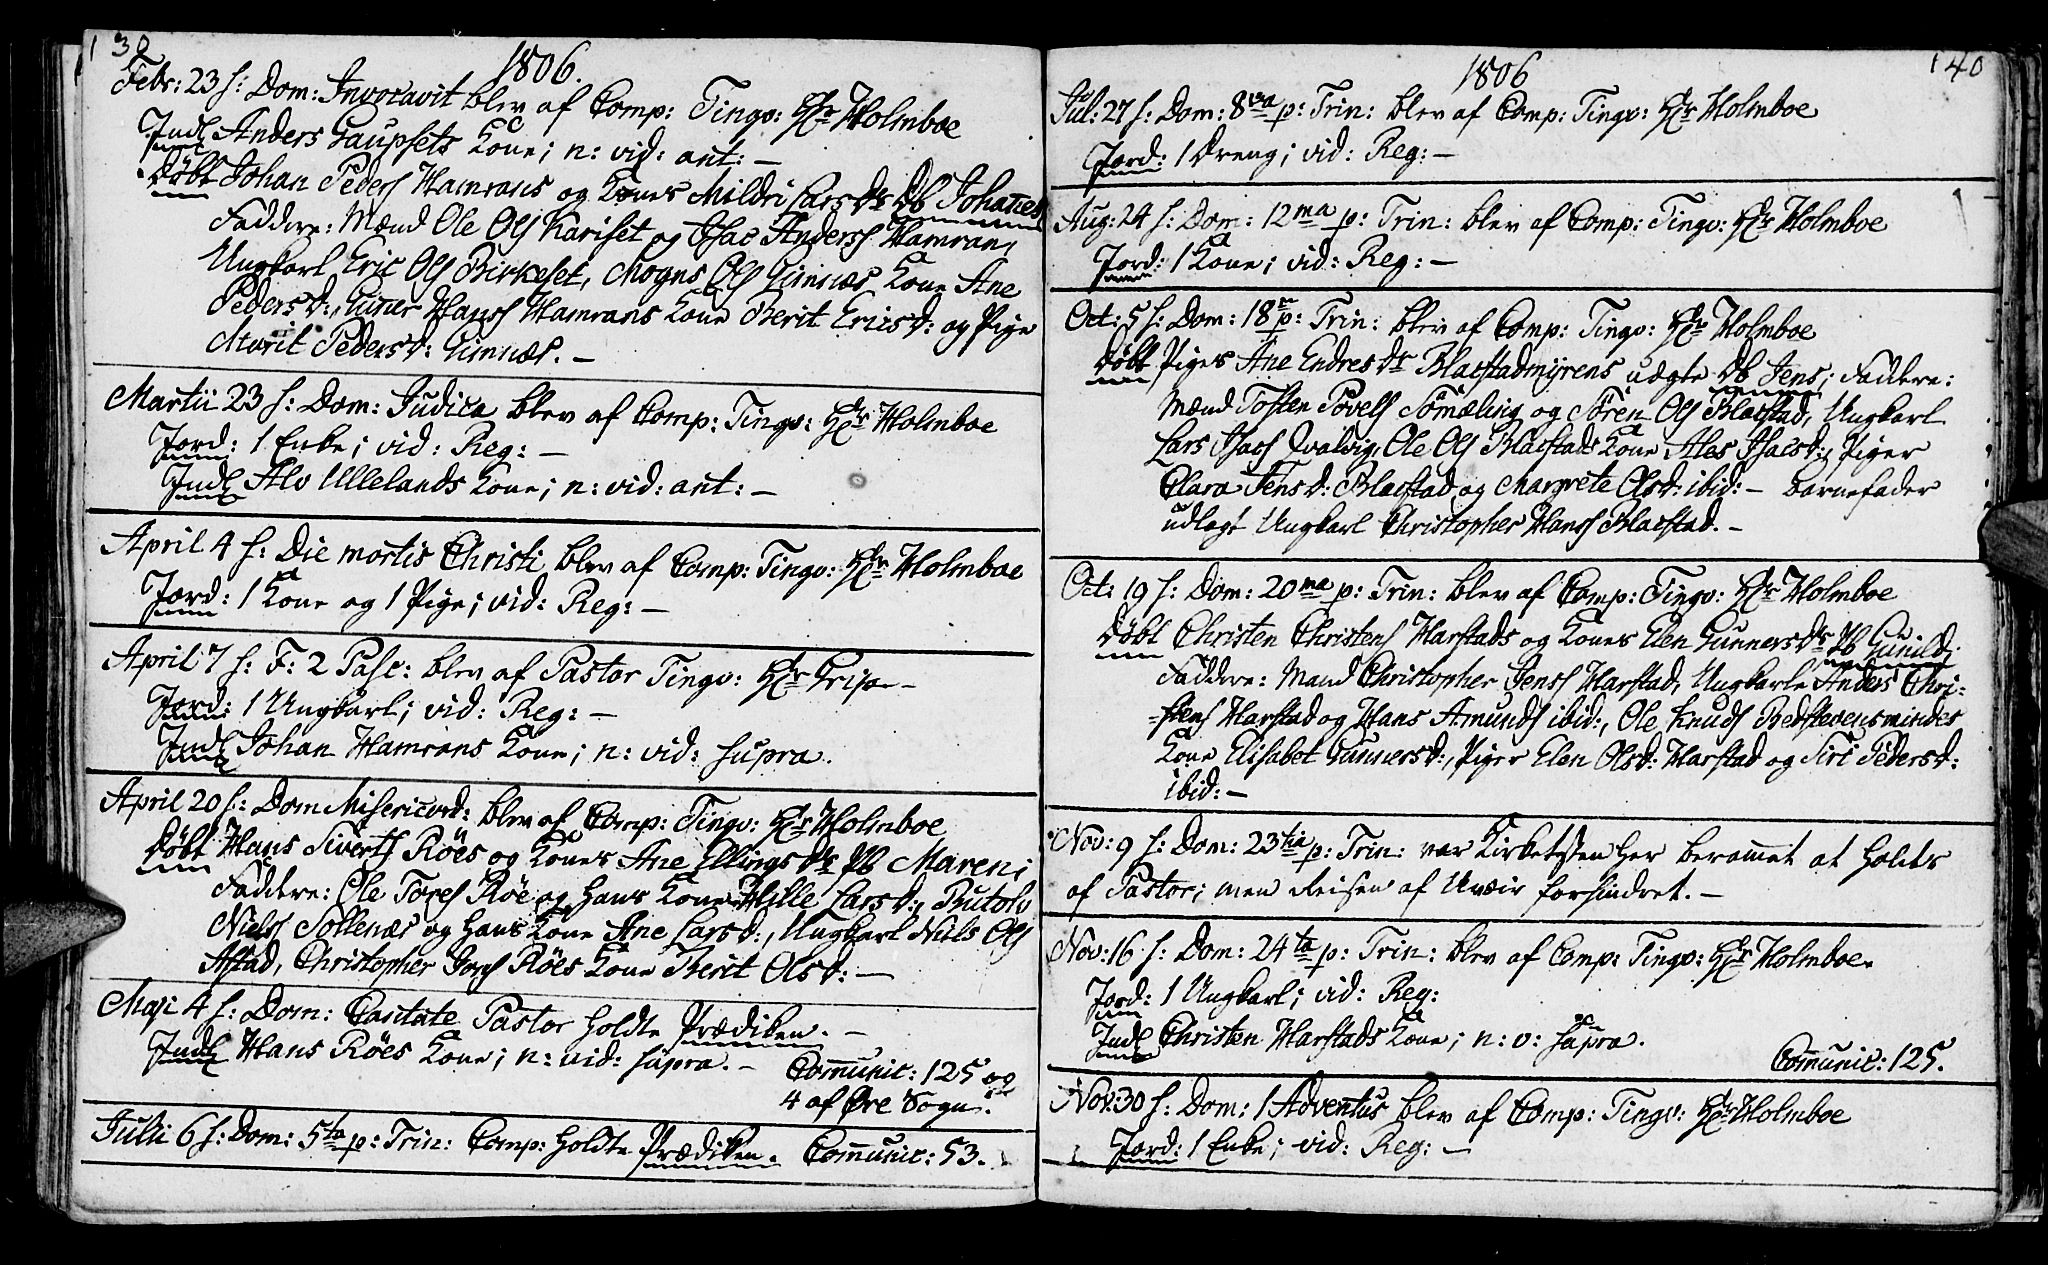 139
1806.
Febr: 23 h: Dom: Invocavit blev af Comp: Tingv: Hr Holmboe
Indl Anders Gaupsets Kone; n: vid: ant: —
Döbt Johan Peders Hamrans og Kones Mildri Lars Dr Db Johanes
Faddere: Mænd Ole Ols Kariset og Isac Anders Hamran,
Ungkarl Eric Ols Birkeset, Mogns Ols Gimnæs Kone Ane
Peders D:, Giner Hans Hamrans Kone Berit Erics D: og Pige
Marit Peders D: Gimnæs. —
Martii 23 h: Dom: Judica blev af Comp: Tingv: Hr Holmboe
Jord: 1 Enke; vid: Reg: —
Indl Alv Ullelands Kone; n: vid: ant: —
April 4 h: Die mortis Christi blev af Comp: Tingv: Hr Holmboe
Jord: 1 Kone og 1 Pige; vid: Reg: —
April 7 h: F: 2 Pasc: blev af Pastor Tingv: Hr —
Jord: 1 Ungkarl; vid: Reg: —
Indl Johan Hamrans Kone; n: vid: supra.
April 20 h: Dom Misericord: blev af Comp: Tingv: Hr Holmboe
Döbt Hans Siverts Röes og Kones Ane Ellings Dr Pb Mareni
Faddere: Ole Tores Röe og hans Kone Hille Lars D:, Butolv
Niels Sollenæs og hans Kone Ane Lars D:, Ungkarl Niels Ols
Astad, Christopher Röes Kone Berit Ols D: —
Maji 4 h: Dom: Cantate Pastor holdte Prædiken. —
Indl Hans Röes Kone; n: vid: supra. —
Comunic: 125 og
4 af Øre Sogn.
Julii 6 h: Dom: 5ta p: Trin: Comp: holdte Prædiken. Comunic: 53.
1806
140
Jul: 27 h: Dom: 8va p: Trin: blev af Comp: Tingv: Hr Holmboe
Jord: 1 Dreng; vid: Reg: —
Aug: 24 h: Dom: 12ma p: Trin: blev af Comp: Tingv: Hr Holmboe
Jord: 1 Kone; vid: Reg: —
Oct: 5 h: Dom: 18 p: Trin: blev af Comp: Tingv: Hr Holmboe
Döbt Piges Ane Endres Dr Blacstadmyrens uægte Db Jens; Faddere:
Mænd Tosten Povels Sömæling og Sören Ols Blacstad, Ungkarl
Lars Isacs Qvalvig, Ole Ols Blacstads Kone Ales Isacs D:, Piger
Clara Jens D: Blacstad og Margrete Ols D: ibid: — Barnefader
udlagt Ungkarl Christopher Hans Blacstad. —
Oct: 19 h: Dom: 20ma p: Trin: blev af Comp: Tingv: Hr Holmboe
Döbt Christen Christens Harstads og Kones Elen Gunners Dr Pb Gunild;
Faddere: Mand Christopher Jens Harstad, Ungkarle Anders Chri-
stens Harstad og Hans Amunds ibid:, Ole Knuds Bedstevensmindes
Kone Elisabet Gunners D:, Piger Elen Ols D: Harstad og Siri Peders D:
ibid: —
Nov: 9 h: Dom: 23tia p: Trin: var Kirketisten her beramet at holdes
af Pastor; men Reisen af Uveir forhindret. —
Nov: 16 h: Dom: 24ta p: Trin: blev af Comp: Tingv: Hr Holmboe.
Jord: 1 Ungkarl; vid: Reg:
Indl Christen Harstads Kone; n: v: supra.
Comunic: 125.
Nov: 30 h: Dom: 1 Adventus blev af Comp: Tingv: Hr Holmboe
Jord: 1 Enke; vid: Reg: —